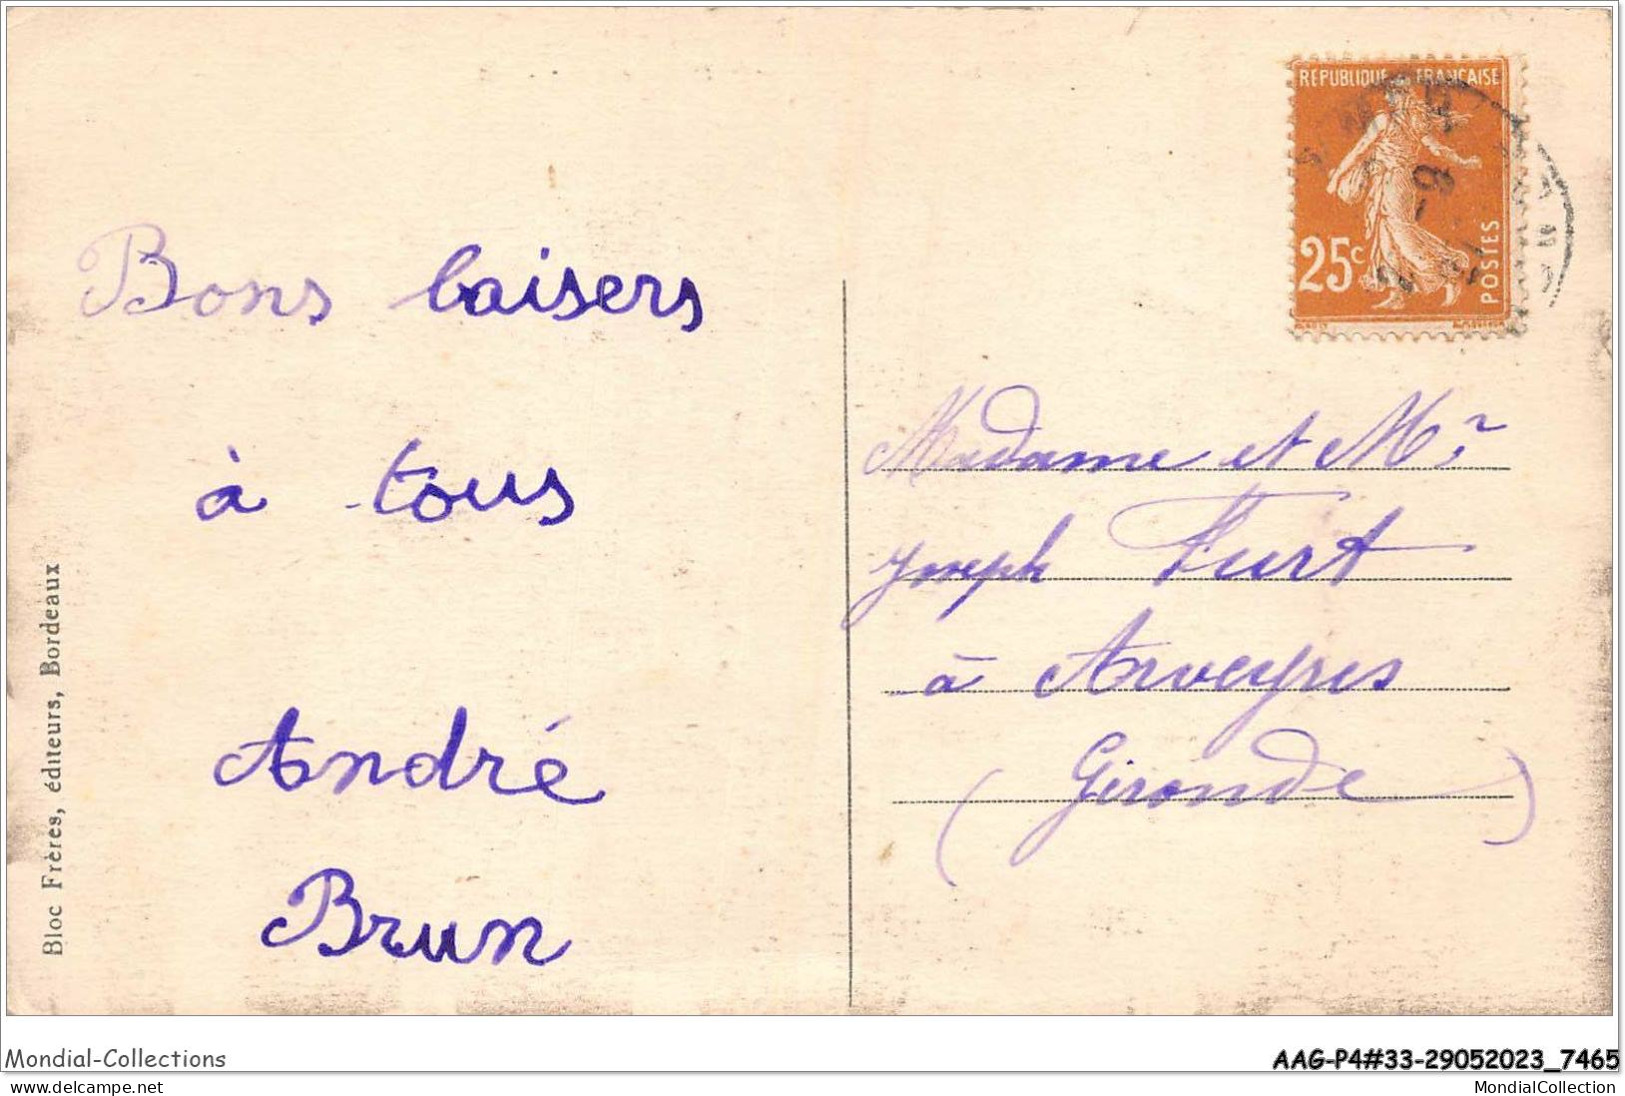 Bons baisers
à tous
André
Brun
Bloc Frères, éditeurs, Bordeaux
RÉPUBLIQUE FRANÇAISE
25c
POSTES
Madame et Mr
Joseph Furt
à Arveyres
(Gironde)
Mondial-Collections
AAG-P4#33-29052023_7465
www.delcampe.net
MondialCollection